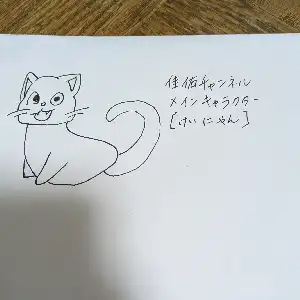 佳佑チャンネル
メインキャラクター
[けいにゃん]